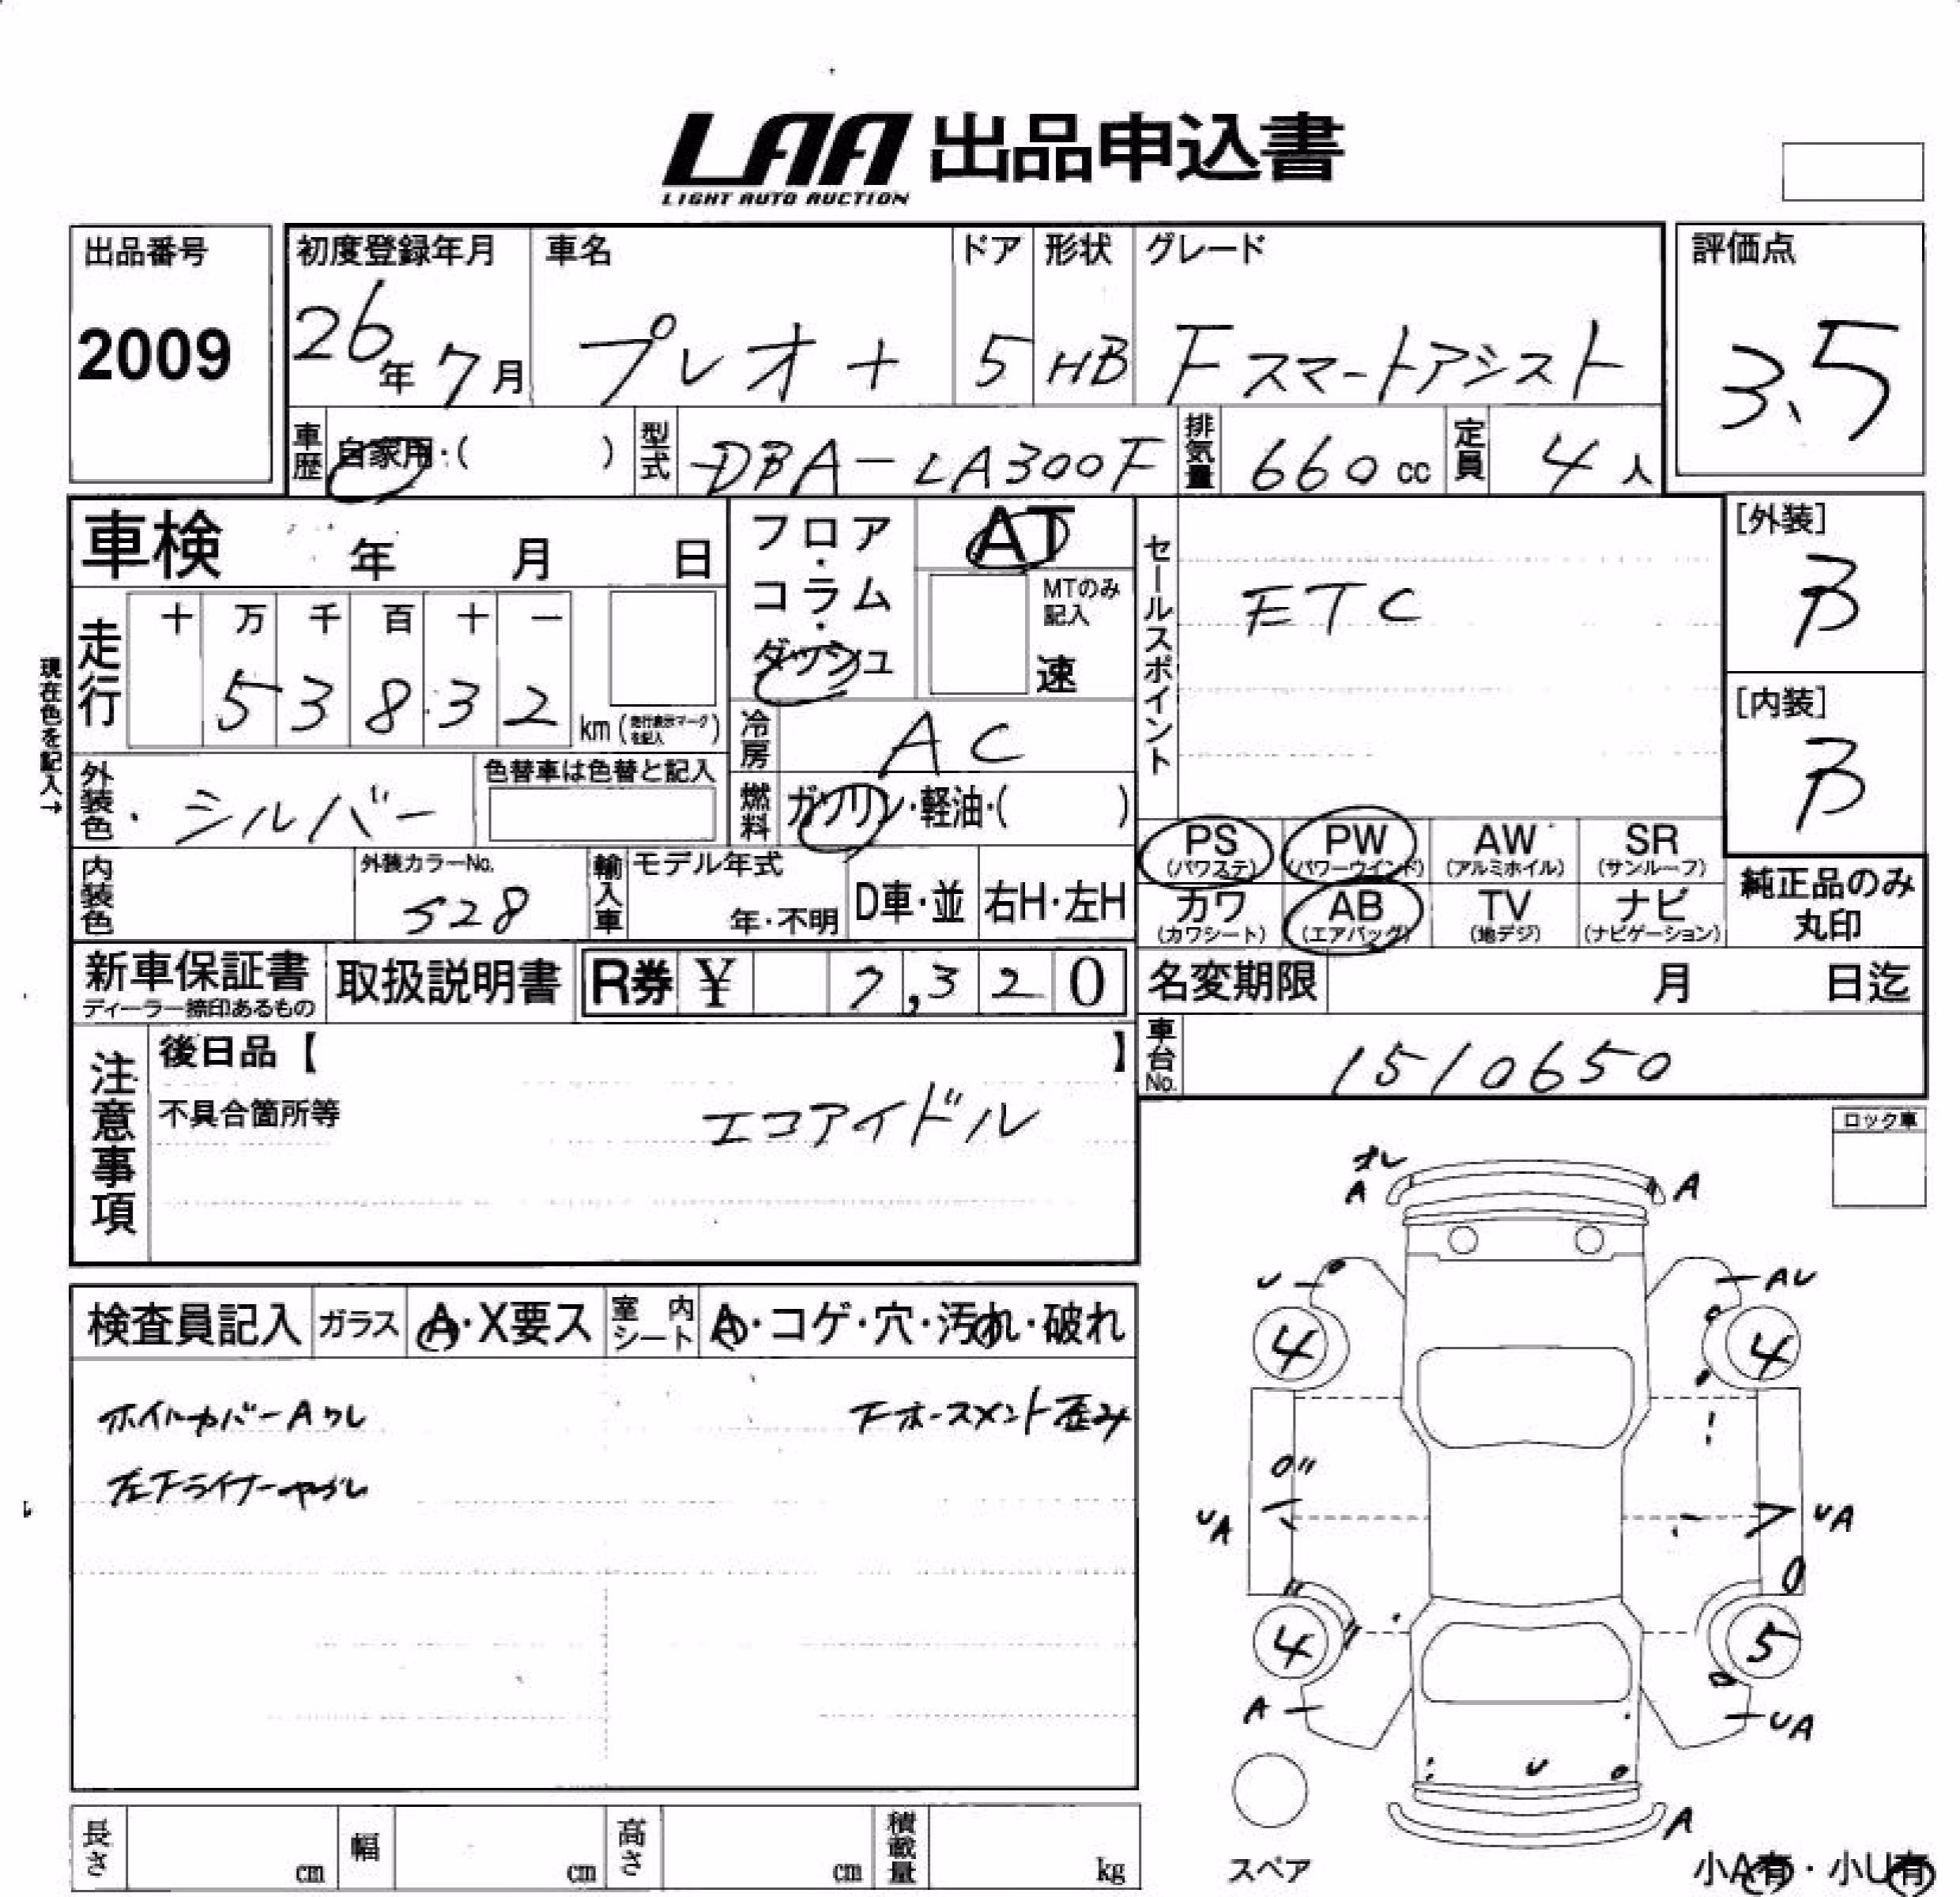 LAA 出品申込書
LIGHT AUTO AUCTION
出品番号
2009
初度登録年月
26年 7月
車名
プレオ+
ドア
5
形状
HB
グレード
Fスマートアシスト
評価点
3.5
車歴
自家用・( )
型式
DBA-LA300F
排気量
660 cc
定員
4 人
車検 年 月 日
フロア・コラム・ダッシュ
AT
MTのみ記入
速
セールスポイント
ETC
[外装]
B
[内装]
B
現在色を記入→
走行
十 万 千 百 十 一
5 3 8 3 2
km (走行表示マークを記入)
冷房
AC
燃料
ガソリン・軽油・( )
外装色
シルバー
色替車は色替と記入
内装色
外装カラーNo.
S28
輸入車
モデル年式
年・不明
D車・並
右H・左H
PS (パワステ)
PW (パワーウインド)
AW (アルミホイル)
SR (サンルーフ)
カワ (カワシート)
AB (エアバッグ)
TV (地デジ)
ナビ (ナビゲーション)
純正品のみ丸印
新車保証書
ディーラー捺印あるもの
取扱説明書
R券 ¥ 7,320
名変期限 月 日迄
車台No.
1510650
注意事項
後日品【 】
不具合箇所等
エコアイドル
ロック車
検査員記入
ガラス
A・X要ス
室内シート
A・コゲ・穴・汚れ・破れ
ホイルカバーAワレ
Fホースメント歪み
左Fライナーヤブレ
オレ
A
A
U
AU
4
4
UA
UA
4
5
A
UA
U
A
スペア
小A有・小U有
長さ cm
幅 cm
高さ cm
積載量 kg